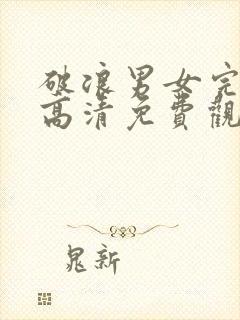 破浪男女完
高清免費觀
晁新